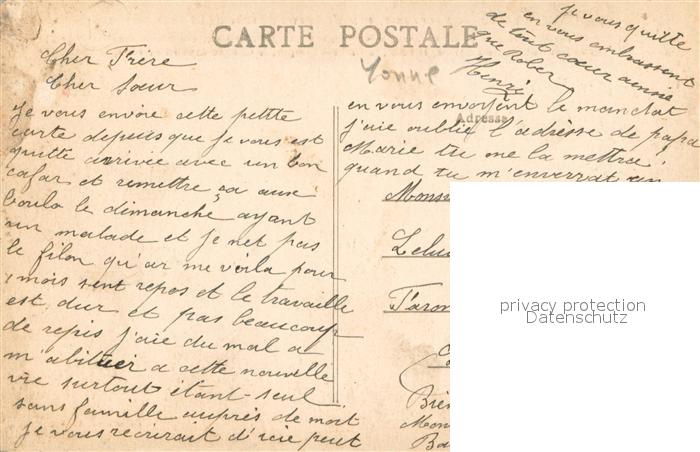 CARTE POSTALE
Yonne
Adresse
Cher Frère
Cher Sœur
Je vous envoie cette petite
carte depuis que je vous est
quitte arrivée avec un bon
cafar et remettre sa aux
boulo le dimanche ayant
un malade et je net pas
le filon qu'ar me voila pour
mois sent repos et le travaille
est dur et pas beaucoup
de repis j'aie du mal a
m'abituer a cette nouvelle
vie surtout étant seul
sans famille auprès de mort
je vous recrirait d'icie peut
en vous envorient le mandat
j'aie oublié l'adrèsse de papa
Marie tu me la mettra
quand tu m'enverrat un
je vous quitte
en vous embrassent
de tout cœur ainsie
que Rober
Henri
Monsi
Lelu
Taron
Bié
Mon
Ba
privacy protection
Datenschutz